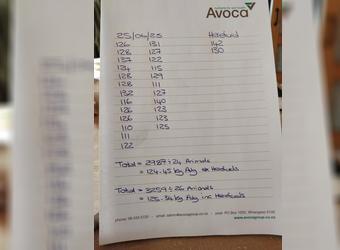 Avoca
25/06/25 Hereford
126 131 142
128 127 130
137 122
134 115
128 129
128 111
132 127
116 140
126 123
126 123
110 125
111
122
Total = 2987 ÷ 24 Animals
= 124.45 kg Avg ex Herefords
Total = 3259 ÷ 26 Animals
= 125.34 kg Avg inc Herefords
www.avocagroup.co.nz